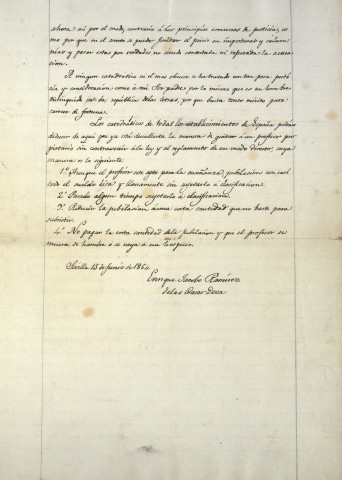 ahora: así por el modo, contrario á los principios comunes de justicia, co-
mo por que en el acta se puede faltar el juicio en imposturas y calum-
nias y pasar estas por verdades no siendo contestada ni refutada la acusa-
cion.
A ningun catedratico ni el mas obscuro se ha tratado con tan poca justi-
cia y consideracion como á mi. Ser padres por lo mismo que es un hombre
distinguido por la república de las letras, ya que basta tener mérito para
carecer de fortuna.
Los catedráticos de todos los establecimientos de España pueden
deducir de aqui que ya está descubierta la manera de quitar á un profesor pro-
pietario sin contravenir á la ley y al reglamento de un modo directo, cuya
manera es la siguiente
1.º Aunque el profesor este apto para la enseñanza jubilacion con casi
todo el sueldo lisa y llanamente sin sujetarlo á clasificacion.
2.º Pasado algun tiempo sujetarlo á clasificacion.
3.º Reducir la jubilacion á una corta cantidad que no baste para
subsistir.
4.º No pagar la corta cantidad de la jubilacion y que el profesor se
muera de hambre ó se vaya á un hospicio.
Sevilla 15 de Junio de 1864.
Enrique Jacobo Ramirez
de las Casas-Deza